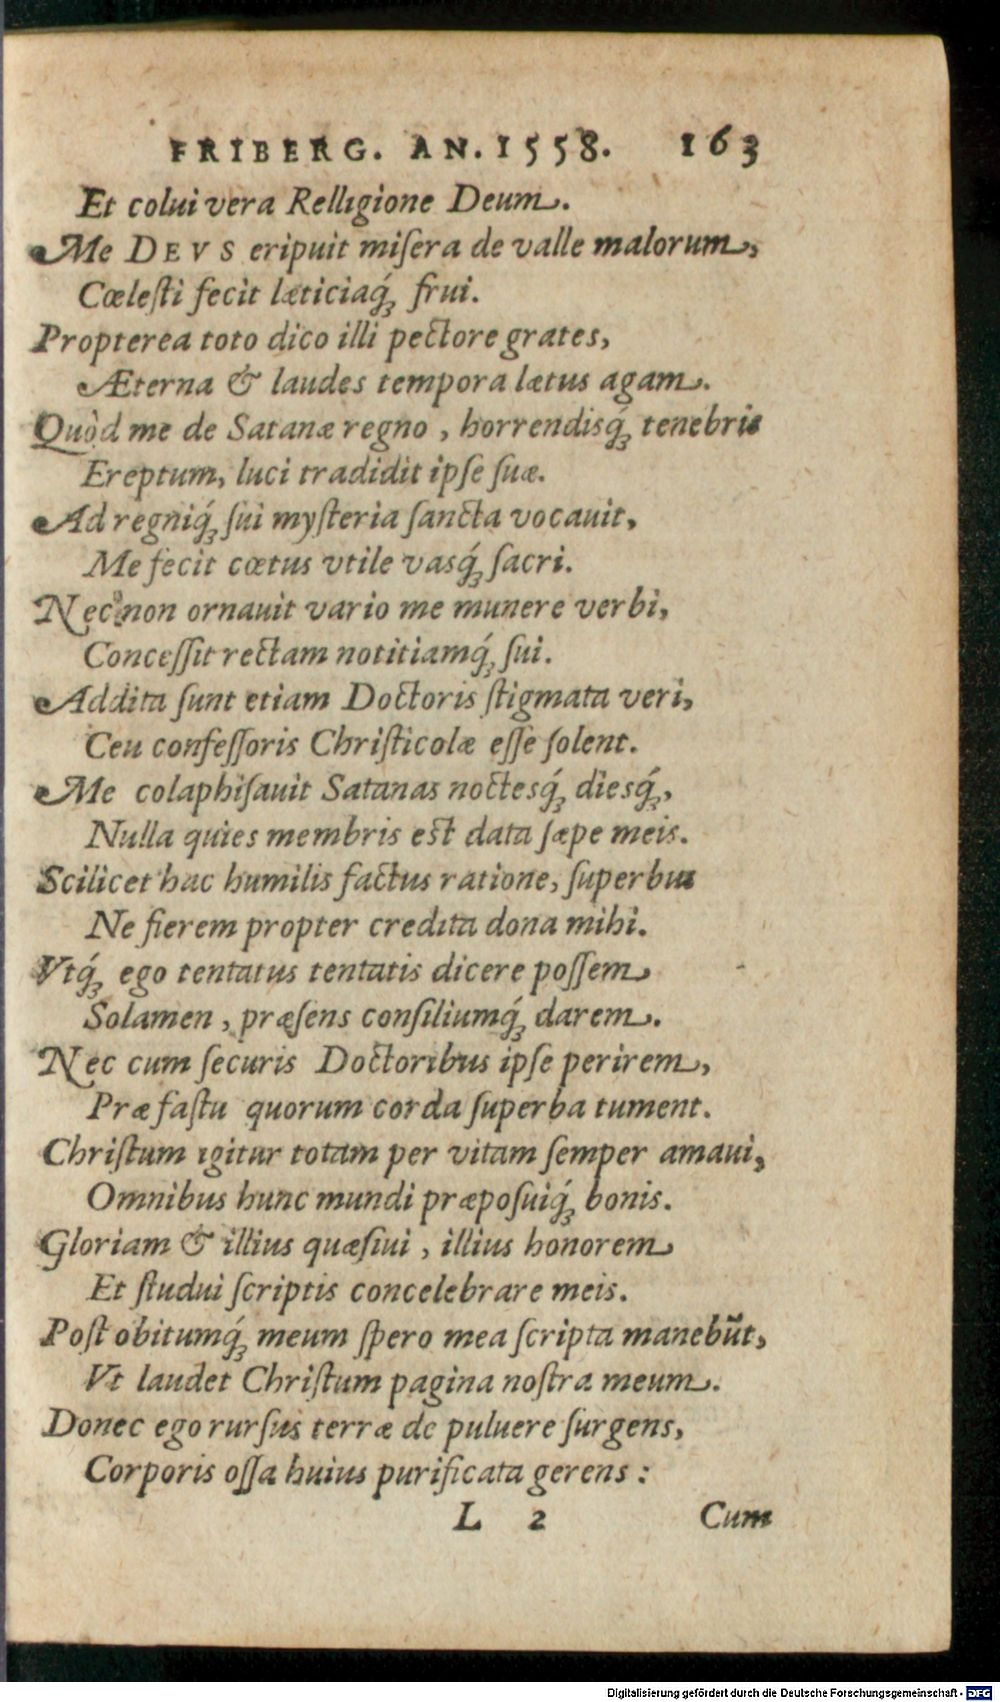 FRIBERG. AN. 1558. 163
Et colui vera Relligione Deum.
Me DEVS eripuit miſera de valle malorum,
Cœleſti fecit lætitiaq́ꝫ frui.
Propterea toto dico illi pectore grates,
Æterna & laudes tempora lætus agam.
Quòd me de Satanæ regno, horrendisq́ꝫ tenebris
Ereptum, luci tradidit ipſe ſuæ.
Ad regniq́ꝫ ſui myſteria ſancta vocauit,
Me fecit cœtus vtile vasq́ꝫ ſacri.
Nec non ornauit vario me munere verbi,
Conceſſit rectam notitiamq́ꝫ ſui.
Addita ſunt etiam Doctoris ſtigmata veri,
Ceu confeſſoris Chriſticolæ eſſe ſolent.
Me colaphiſauit Satanas noctesq́ꝫ diesq́ꝫ,
Nulla quies membris est data ſæpe meis.
Scilicet hac humilis factus ratione, ſuperbus
Ne fierem propter credita dona mihi.
Vtq́ꝫ ego tentatus tentatis dicere poſſem
Solamen, præſens conſiliumq́ꝫ darem.
Nec cum ſecuris Doctoribus ipſe perirem,
Præ faſtu quorum corda ſuperba tument.
Chriſtum igitur totam per vitam ſemper amaui,
Omnibus hunc mundi præpoſuiq́ꝫ bonis.
Gloriam & illius quæſiui, illius honorem
Et ſtudui ſcriptis concelebrare meis.
Poſt obitumq́ꝫ meum ſpero mea ſcripta manebūt,
Vt laudet Chriſtum pagina noſtra meum.
Donec ego rurſus terræ de puluere ſurgens,
Corporis oſſa huius purificata gerens:
L 2 Cum
Digitalisierung gefördert durch die Deutsche Forschungsgemeinschaft - DFG